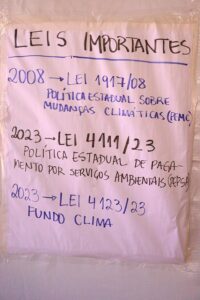 LEIS IMPORTANTES
2008 → LEI 1917/08
POLÍTICA ESTADUAL SOBRE
MUDANÇAS CLIMÁTICAS (PEMC)
2023 → LEI 4111/23
POLÍTICA ESTADUAL DE PAGA-
MENTO POR SERVIÇOS AMBIENTAIS (PEPSA)
2023 → LEI 4123/23
FUNDO CLIMA